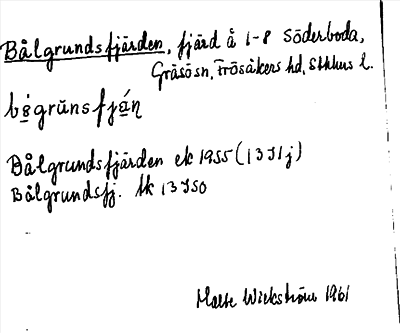 Bålgrundsfjärden, fjärd å 1-8 Söderboda,
Gräsö sn, Frösåkers hd, Sthlms l.
bǻgrŭnsfján
Bålgrundsfjärden ek 1955 (13 I 1 j)
Bålgrundsfj. tk 13 I SO
Malte Wickström 1961